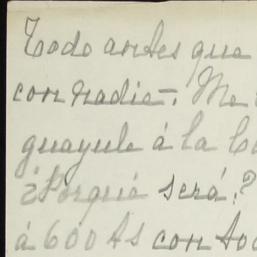 Todo antes que
con nadie-. Me
guayule á la
¿Porqué será?
á 600 ts con